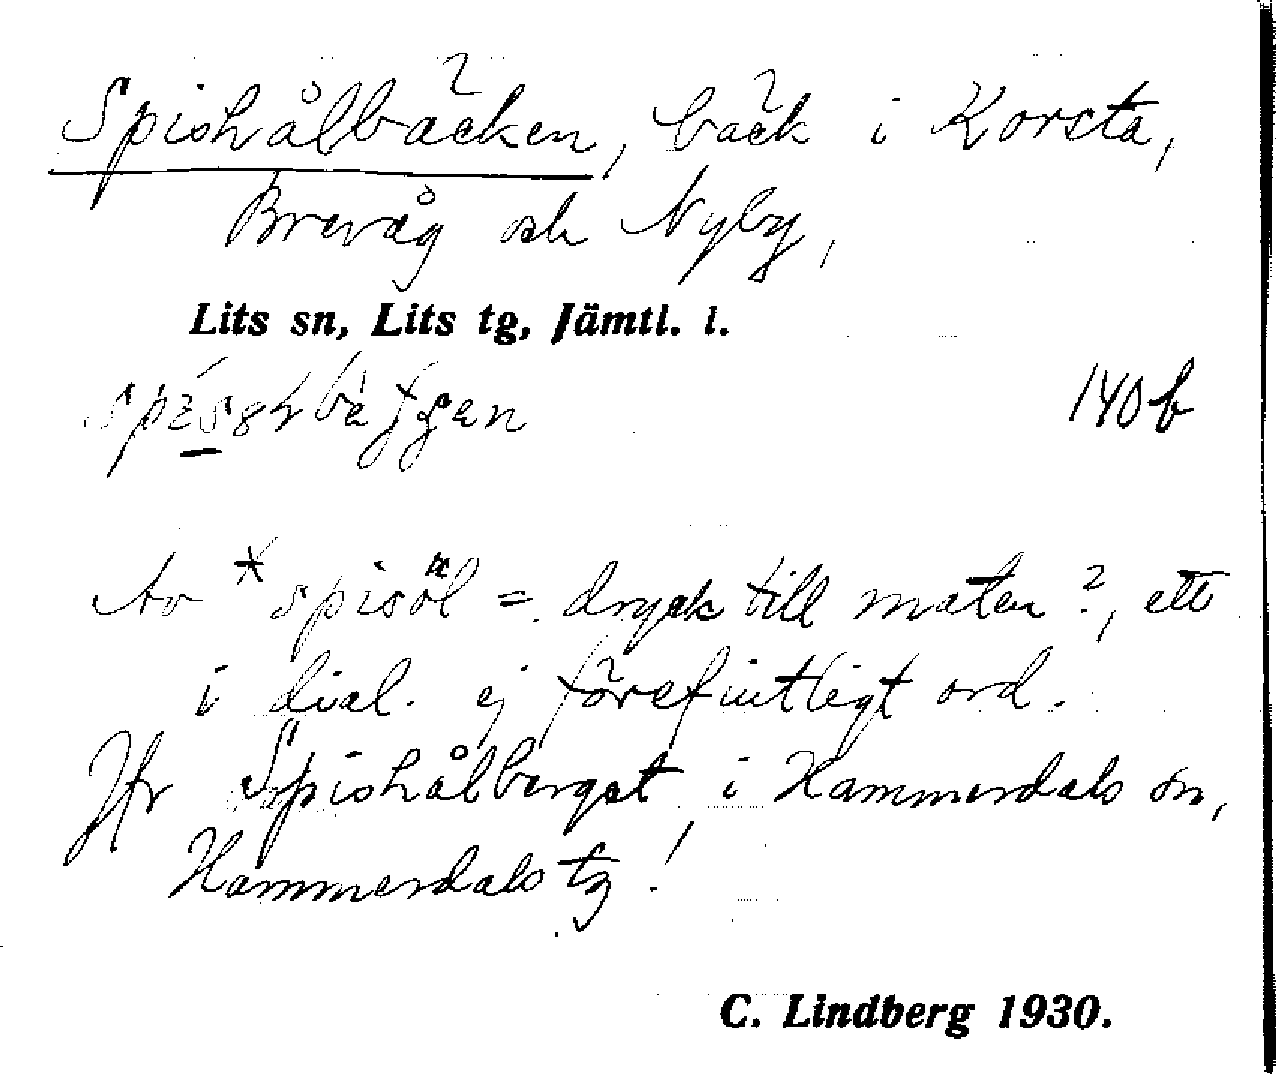 Spishålbäcken, bäck i Korsta,
Brevåg och Nyby,
Lits sn, Lits tg, Jämtl. l.
140 b
Av *spisöl = dryck till maten?, ett
i dial. ej förefintligt ord.
Jfr Spishålberget i Hammerdals sn,
Hammerdals tg!
C. Lindberg 1930.